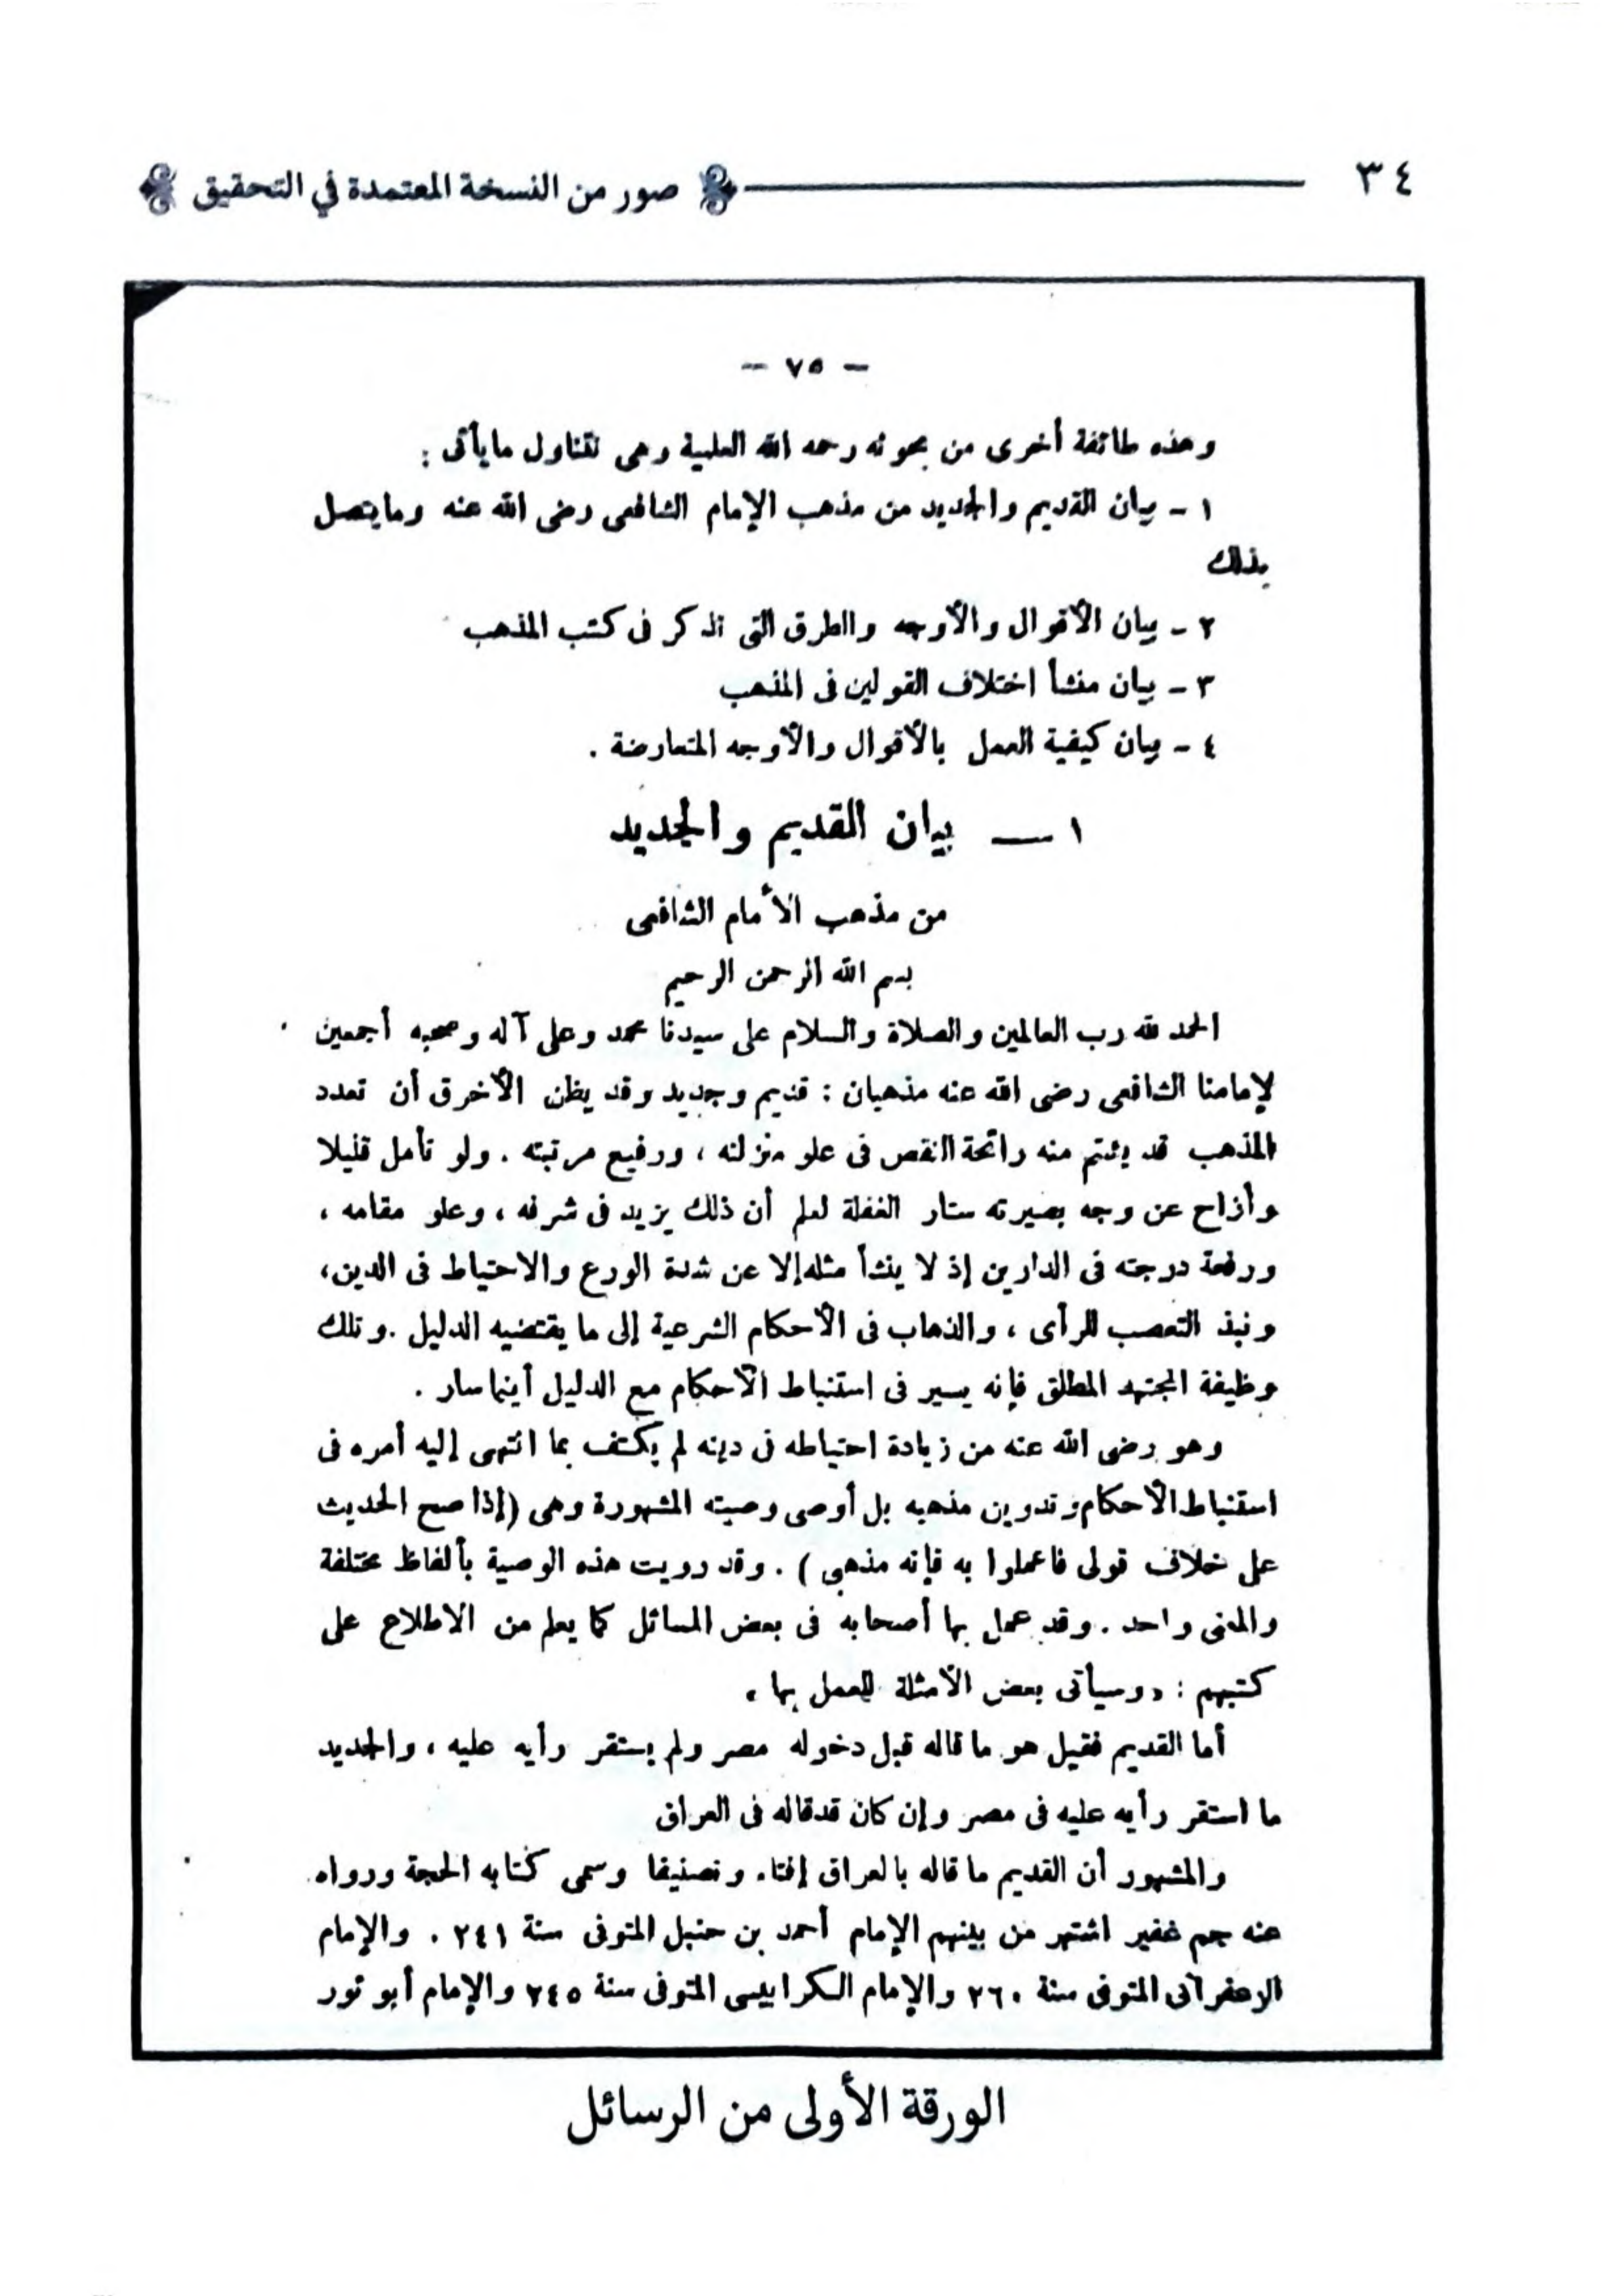 ٣٤ صور من النسخة المعتمدة في التحقيق
- ٧٥ -
وهذه طائفة أخرى من بحوثه رحمه الله العلمية وهى تتناول ما يأتى :
١ - بيان القديم والجديد من مذهب الإمام الشافعى رضى الله عنه وما يتصل
بذلك
٢ - بيان الأقوال والأوجه والطرق التى تذكر فى كتب المذهب
٣ - بيان منشأ اختلاف القولين فى المذهب
٤ - بيان كيفية العمل بالأقوال والأوجه المتعارضة .
١ — بيان القديم والجديد
من مذهب الأمام الشافعى
بسم الله الرحمن الرحيم
الحمد لله رب العالمين والصلاة والسلام على سيدنا محمد وعلى آله وصحبه أجمعين
لإمامنا الشافعى رضى الله عنه مذهبان : قديم وجديد وقد يظن الأخرق أن تعدد
المذهب قد يشتم منه رائحة النقص فى علو منزلته ، ورفيع مرتبته . ولو تأمل قليلا
وأزاح عن وجه بصيرته ستار الغفلة لعلم أن ذلك يزيد فى شرفه ، وعلو مقامه ،
ورفعة درجته فى الدارين إذ لا ينشأ مثله إلا عن شدة الورع والاحتياط فى الدين ،
ونبذ التعصب للرأى ، والذهاب فى الأحكام الشرعية إلى ما يقتضيه الدليل . وتلك
وظيفة المجتهد المطلق فإنه يسير فى استنباط الأحكام مع الدليل أينما سار .
وهو رضى الله عنه من زيادة احتياطه فى دينه لم يكتف بما انتهى إليه أمره فى
استنباط الأحكام وتدوين مذهبه بل أوصى وصيته المشهورة وهى (إذا صح الحديث
على خلاف قولى فاعملوا به فإنه مذهبى ) . وقد رويت هذه الوصية بألفاظ مختلفة
والمعنى واحد . وقد عمل بها أصحابه فى بعض المسائل كما يعلم من الاطلاع على
كتبهم : « وسيأتى بعض الأمثلة للعمل بها »
أما القديم فقيل هو ما قاله قبل دخوله مصر ولم يستقر رأيه عليه ، والجديد
ما استقر رأيه عليه فى مصر وإن كان قد قاله فى العراق
والمشهور أن القديم ما قاله بالعراق إفتاء وتصنيفا وسمى كتابه الحجة ورواه
عنه جم غفير اشتهر من بينهم الإمام أحمد بن حنبل المتوفى سنة ٢٤١ . والإمام
الزعفرانى المتوفى سنة ٢٦٠ والإمام الكرابيسى المتوفى سنة ٢٤٥ والإمام أبو ثور
الورقة الأولى من الرسائل